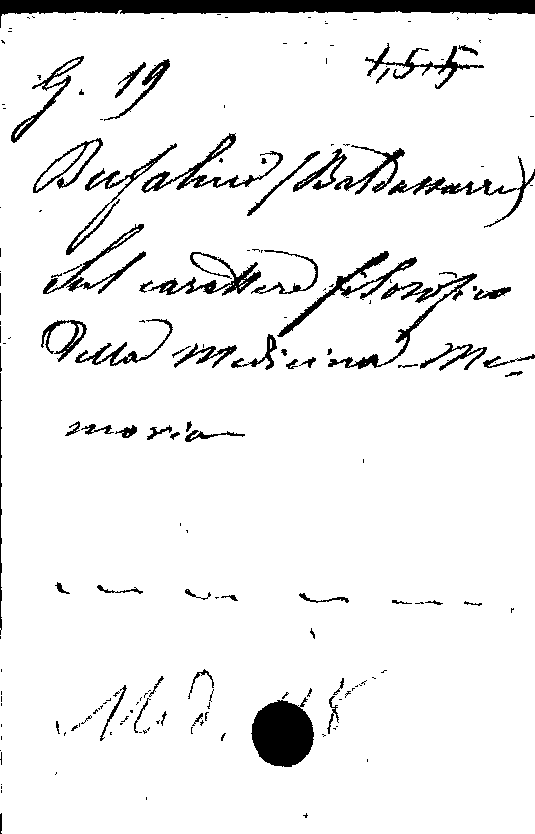 G. 19 1,5,5
Bufalini (Baldassarre)
Sul carattere filosofico
della Medicina Me-
moria